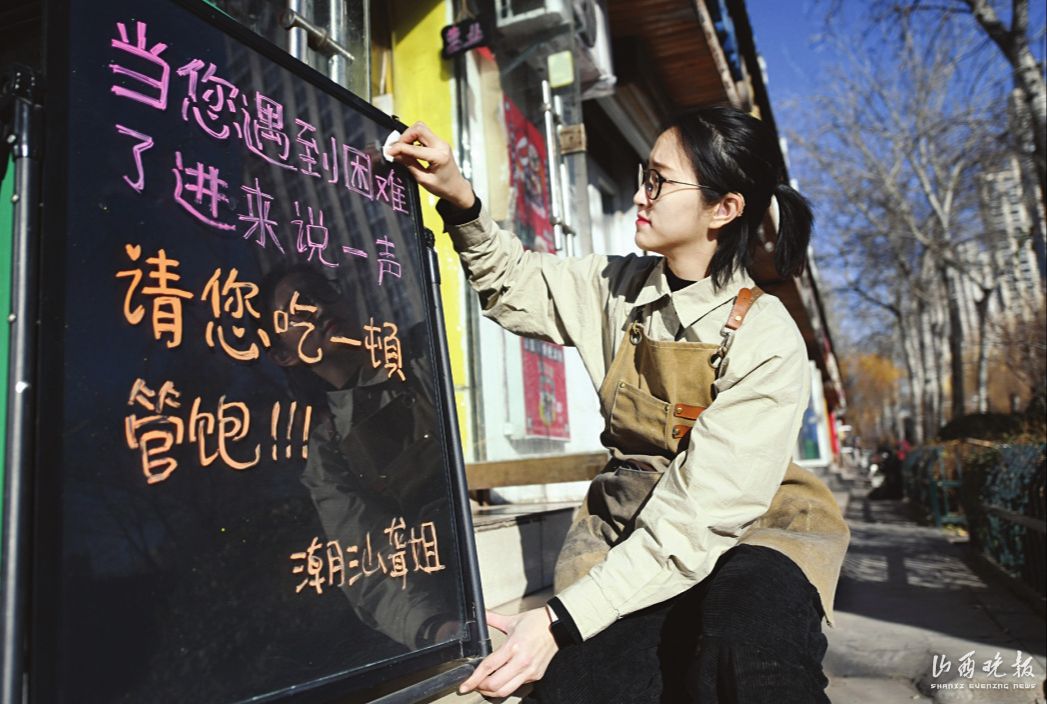 当您遇到困难
了进来说一声
请您吃一顿
管饱!!!
潮汕聋姐
山西晚报
SHANXI EVENING NEWS